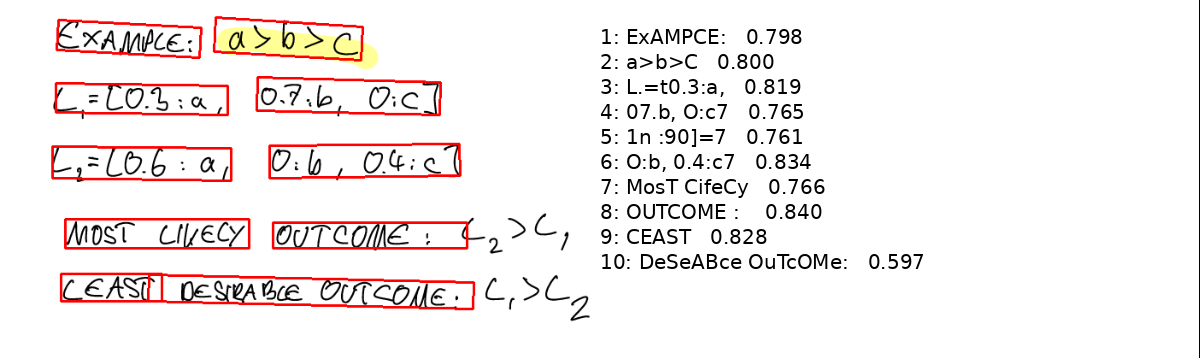 EXAMPLE: a>b>c
L₁=[0.3:a, 0.7:b, 0:c]
L₂=[0.6:a, 0:b, 0.4:c]
MOST LIKELY OUTCOME: L₂>L₁
LEAST DESIRABLE OUTCOME: L₁>L₂
1: ExAMPCE: 0.798
2: a>b>C 0.800
3: L.=t0.3:a, 0.819
4: 07.b, O:c7 0.765
5: 1n :90]=7 0.761
6: O:b, 0.4:c7 0.834
7: MosT CifeCy 0.766
8: OUTCOME : 0.840
9: CEAST 0.828
10: DeSeABce OuTcOMe: 0.597